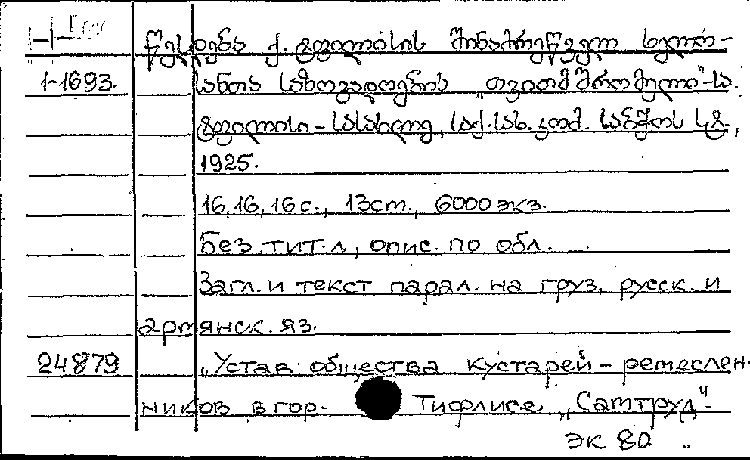 წესდება ქ. ტფილისის შინამრეწველ ხელო-
1-1693. სანთა საზოგადოების „თვითმშრომელი"-სა.
ტფილისი - სასახლე, საქ. სახ. კომ. საბჭოს სტ.,
1925.
16,16,16 с., 13 ст., 6000 экз.
Без тит. л., опис. по обл.
Загл. и текст парал. на груз, русск. и
армянск. яз.
24879 „Устав общества кустарей - ремеслен-
ников в гор. Тифлисе „Самтруд".
ЭК 80